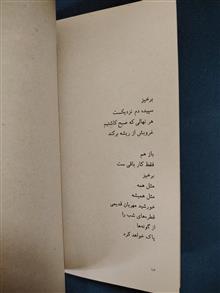 برخیز
سپیده دم نزدیکست
هر نهالی که صبح کاشتیم
غروبش از ریشه برکند
باز هم
فقط کار باقی ست
برخیز
مثل همه
مثل همیشه
خورشید مهربان قدیمی
قطره‌های شب را
از گونه‌ها
پاک خواهد کرد